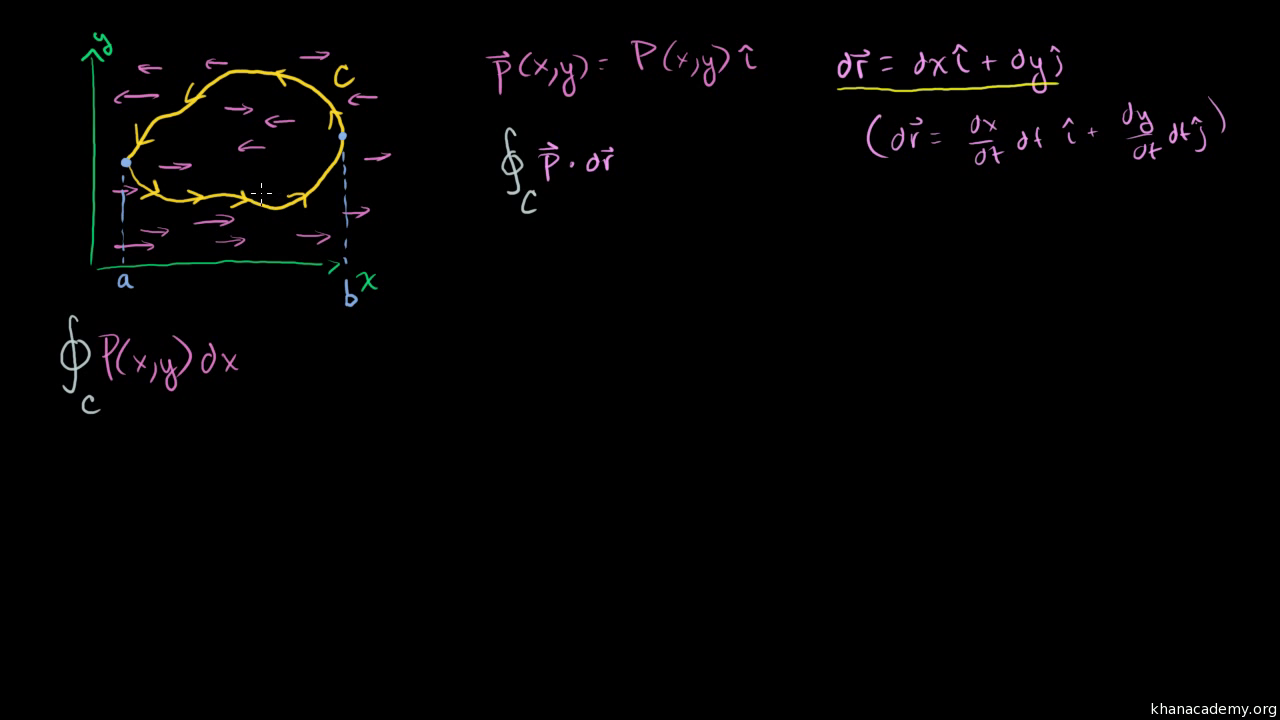 y
C
a
b
x
∮_C P(x,y) dx
p⃗(x,y) = P(x,y) î
∮_C p⃗ · dr⃗
dr⃗ = dx î + dy ĵ
(dr⃗ = dx/dt dt î + dy/dt dt ĵ)
khanacademy.org